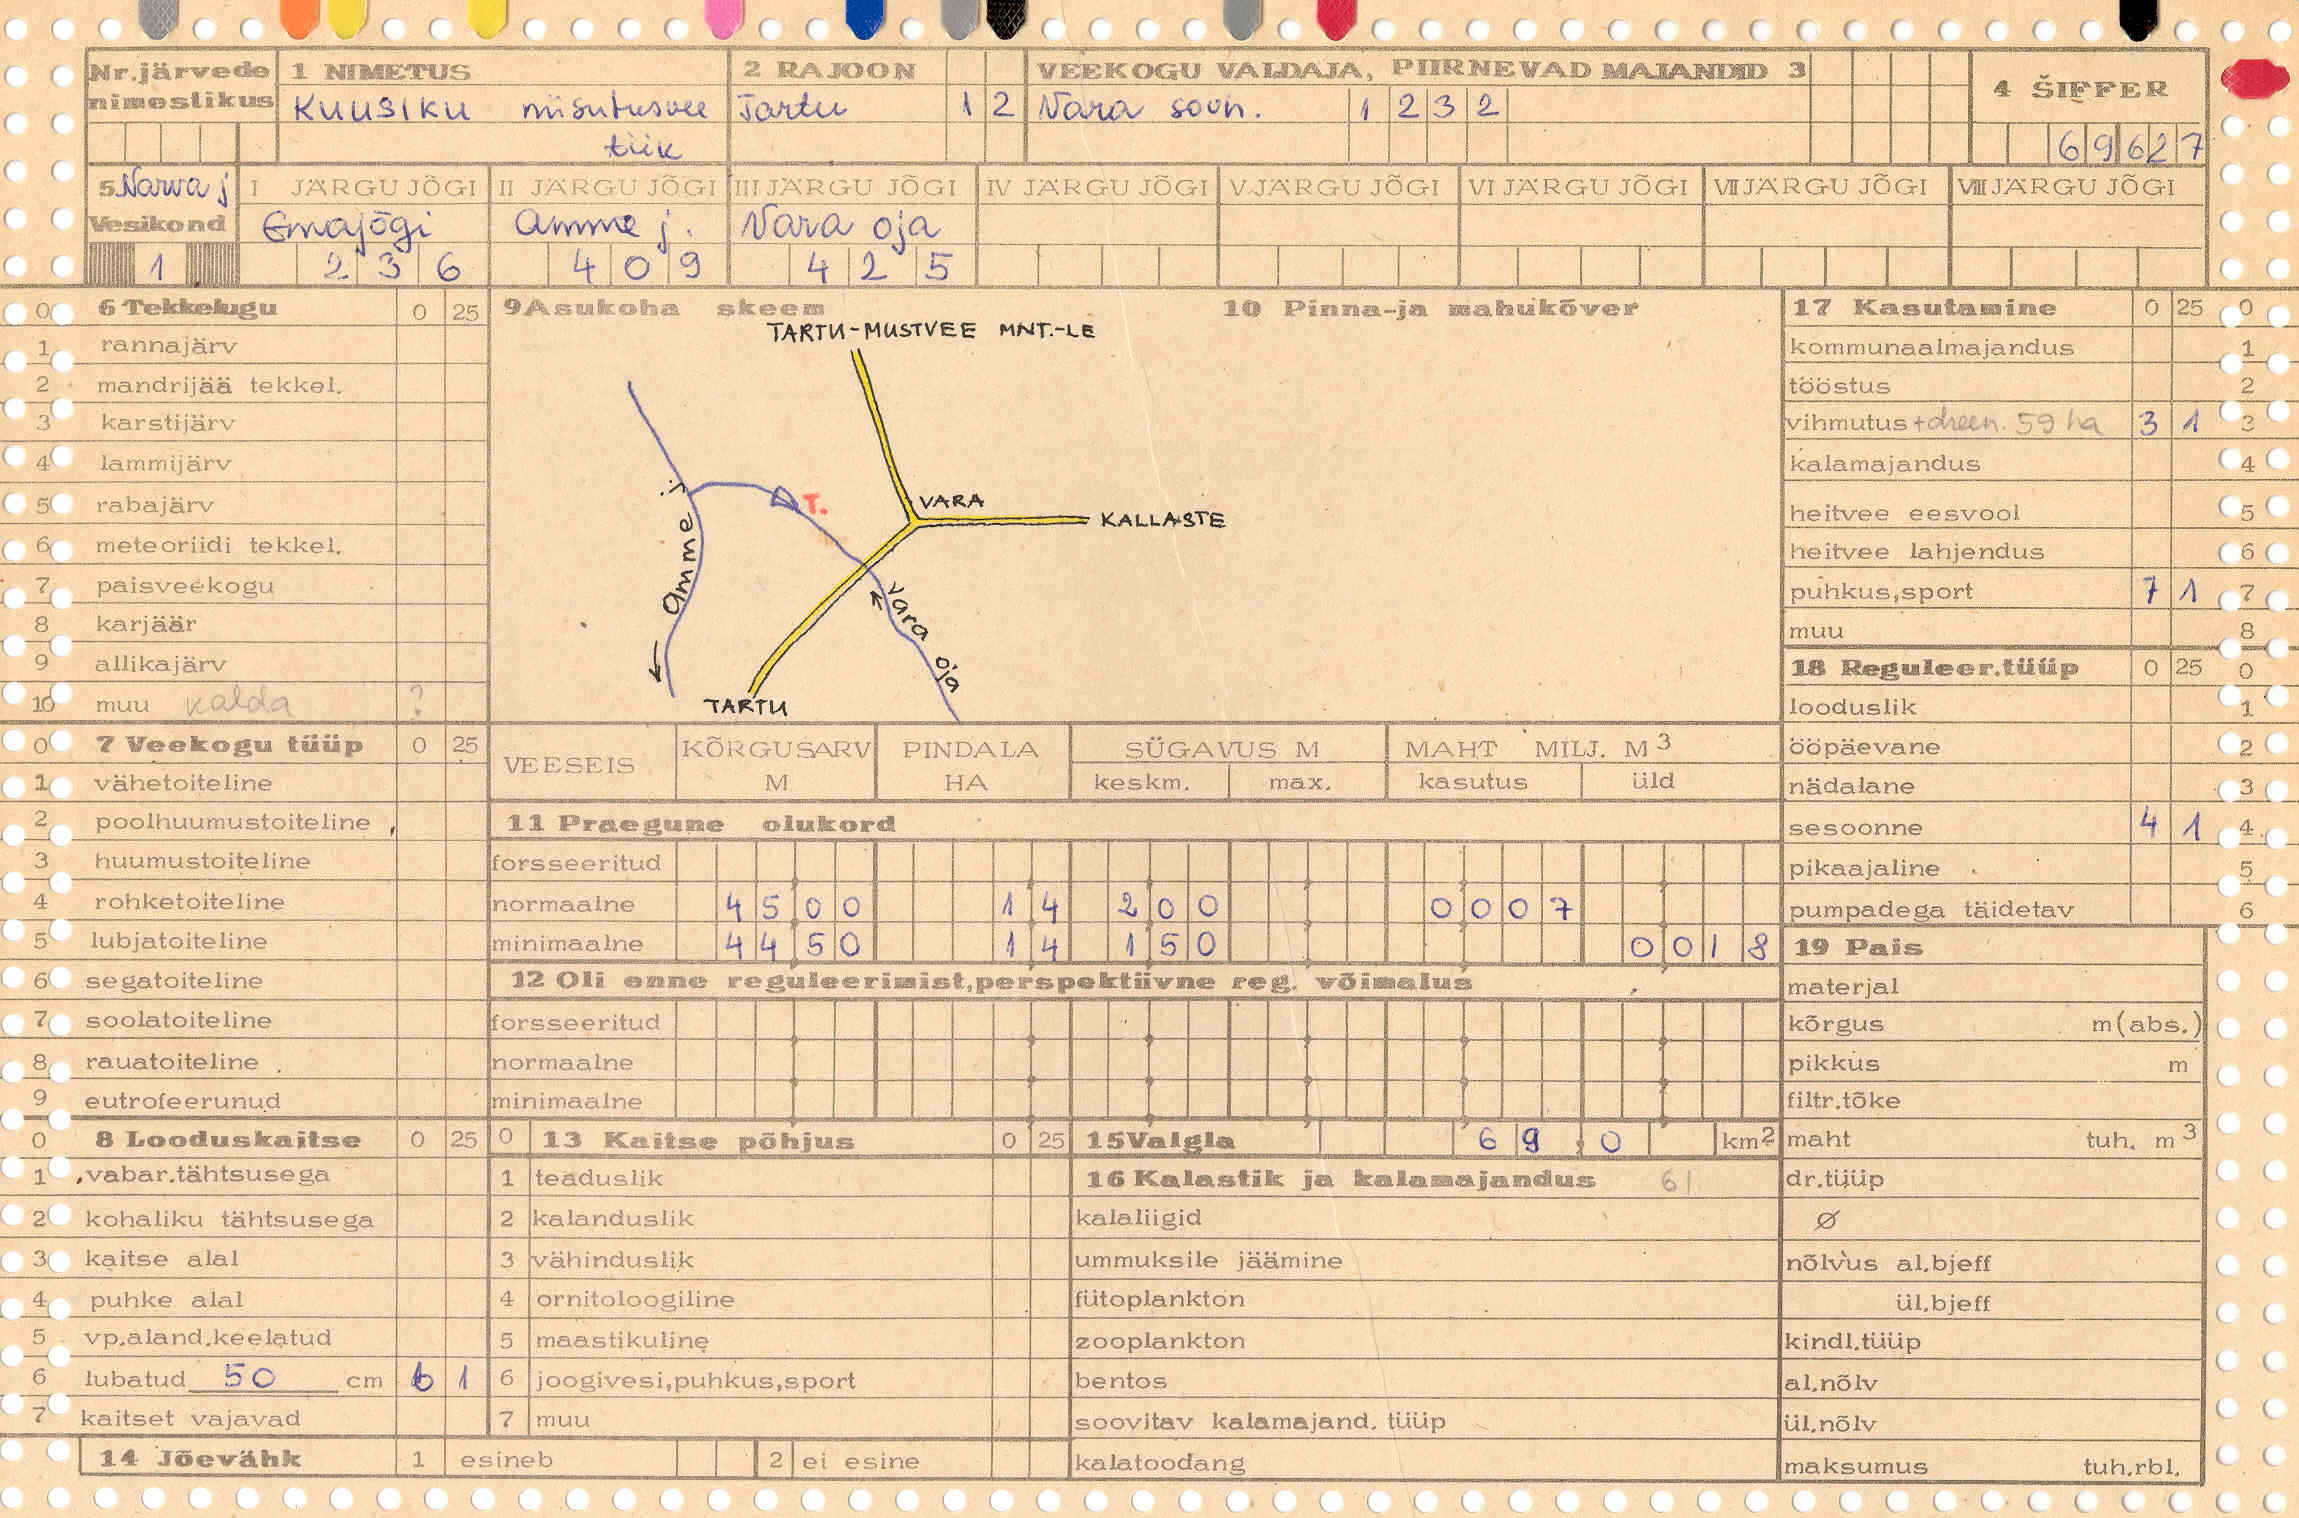 Nr.järvede nimestikus
1 NIMETUS
KUUSIKU niisutusvee tiik
2 RAJOON
Tartu 1 2
VEEKOGU VALDAJA, PIIRNEVAD MAJANDID 3
Vara sovh. 1 2 3 2
4 ŠIFFER
6 9 6 2 7
5 Narva j
Vesikond
1
I JÄRGU JÕGI
Emajõgi
2 3 6
II JÄRGU JÕGI
Amme j.
4 0 9
III JÄRGU JÕGI
Vara oja
4 2 5
IV JÄRGU JÕGI
V JÄRGU JÕGI
VI JÄRGU JÕGI
VII JÄRGU JÕGI
VIII JÄRGU JÕGI
0 6 Tekkelugu 0 25
1 rannajärv
2 mandrijää tekkel.
3 karstijärv
4 lammijärv
5 rabajärv
6 meteoriidi tekkel.
7 paisveekogu
8 karjäär
9 allikajärv
10 muu kalda ?
0 7 Veekogu tüüp 0 25
1 vähetoiteline
2 poolhuumustoiteline
3 huumustoiteline
4 rohketoiteline
5 lubjatoiteline
6 segatoiteline
7 soolatoiteline
8 rauatoiteline
9 eutrofeerunud
0 8 Looduskaitse 0 25
1 vabar.tähtsusega
2 kohaliku tähtsusega
3 kaitse alal
4 puhke alal
5 vp.aland.keelatud
6 lubatud 50 cm 6 1
7 kaitset vajavad
14 Jõevähk 1 esineb 2 ei esine
9 Asukoha skeem
10 Pinna-ja mahukõver
TARTU-MUSTVEE MNT.-LE
T.
VARA
KALLASTE
Amme j
Vara oja
TARTU
VEESEIS
KÕRGUSARV M
PINDALA HA
SÜGAVUS M
keskm. max.
MAHT MILJ. M3
kasutus üld
11 Praegune olukord
forsseeritud
normaalne 4 5 0 0 1 4 2 0 0 0 0 0 7
minimaalne 4 4 5 0 1 4 1 5 0 0 0 1 8
12 Oli enne reguleerimist,perspektiivne reg. võimalus
forsseeritud
normaalne
minimaalne
0 13 Kaitse põhjus 0 25
1 teaduslik
2 kalanduslik
3 vähinduslik
4 ornitoloogiline
5 maastikuline
6 joogivesi,puhkus,sport
7 muu
15 Valgla 6 9 , 0 km2
16 Kalastik ja kalamajandus 61
kalaliigid
ummuksile jäämine
fütoplankton
zooplankton
bentos
soovitav kalamajand. tüüp
kalatoodang
17 Kasutamine 0 25 0
kommunaalmajandus 1
tööstus 2
vihmutus + dreen. 59 ha 3 1 3
kalamajandus 4
heitvee eesvool 5
heitvee lahjendus 6
puhkus,sport 7 1 7
muu 8
18 Reguleer.tüüp 0 25 0
looduslik 1
ööpäevane 2
nädalane 3
sesoonne 4 1 4
pikaajaline 5
pumpadega täidetav 6
19 Pais
materjal
kõrgus m(abs.)
pikkus m
filtr.tõke
maht tuh. m3
dr.tüüp
Ø
nõlvus al.bjeff
ül.bjeff
kindl.tüüp
al.nõlv
ül.nõlv
maksumus tuh.rbl.